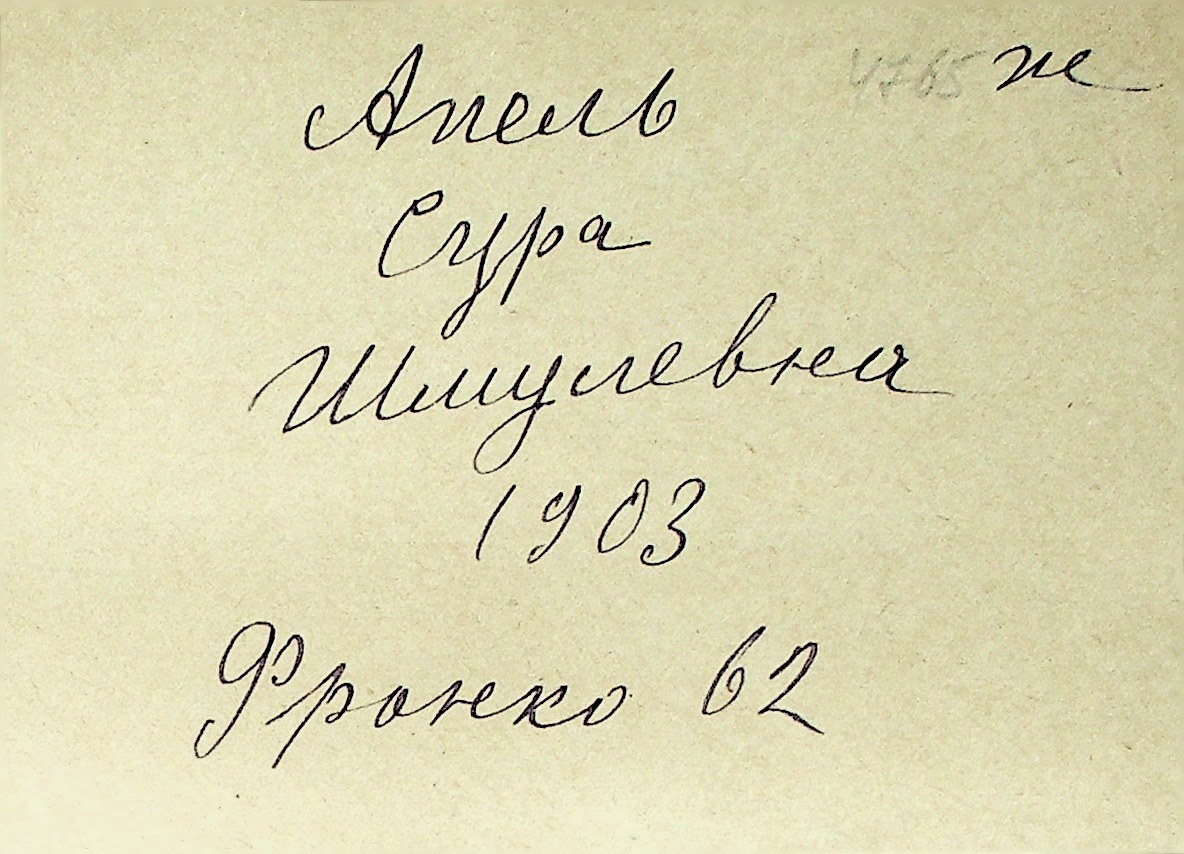 Апель 4765 ж
Сура
Шмулевна
1903
Франко 62